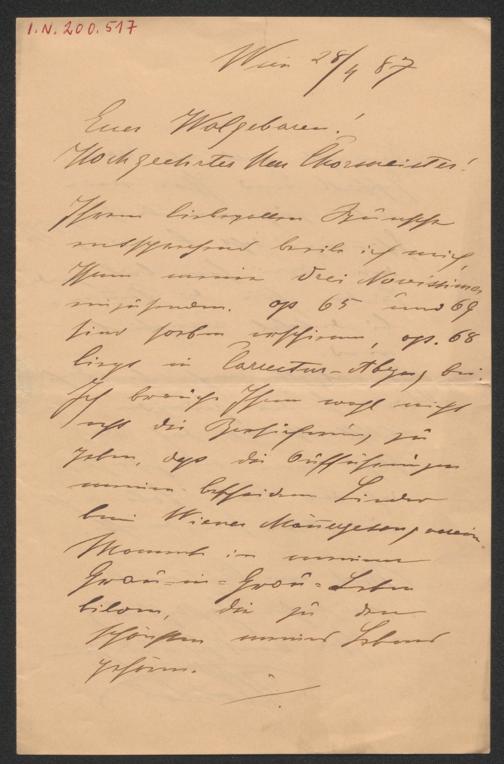 I.N. 200.517
Wien 28/4 87
Euer Wolgeboren!
Hochgeehrter Herr Chormeister!
Ihrem liebevollen Wunsche
entsprechend beeile ich mich,
Ihnen meine drei Novissima
einzusenden. op 65 und 69
sind soeben erschienen, op. 68
liegt in Correctur-Abzug bei.
Ich brauche Ihnen wohl nicht
erst die Versicherung zu
geben, daß die Aufführungen
meiner bescheidenen Lieder
beim Wiener Männergesangverein
Momente in meinem
Grau-in-Grau-Leben
bilden, die zu den
schönsten meines Lebens
gehören.